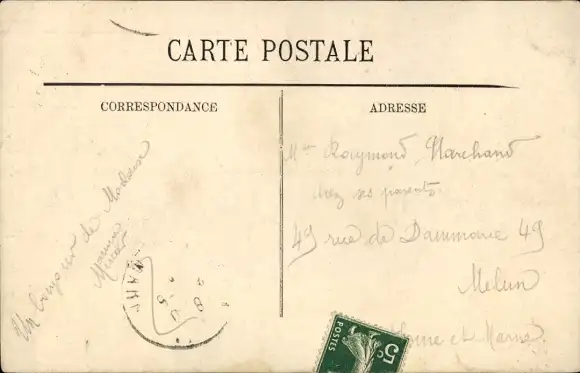 CARTE POSTALE
CORRESPONDANCE
ADRESSE
Un bonjour de Madame
Mme Raymond Marchand
chez ses parents
49 rue de Dammarie 49
Melun
Seine et Marne.
POSTES
5c